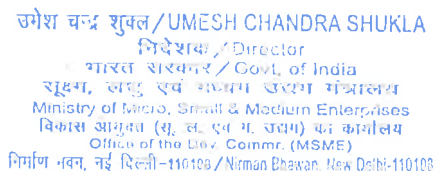 उमेश चन्द्र शुक्ल/UMESH CHANDRA SHUKLA
निदेशक/Director
भारत सरकार/Govt. of India
सूक्ष्म, लघु एवं मध्यम उद्यम मंत्रालय
Ministry of Micro, Small & Medium Enterprises
विकास आयुक्त (सू. ल. एवं म. उद्यम) का कार्यालय
Office of the Dev. Commr. (MSME)
निर्माण भवन, नई दिल्ली-110108/Nirman Bhawan, New Delhi-110108